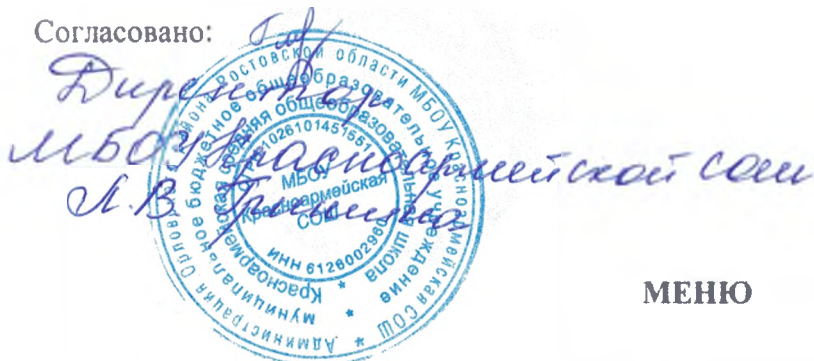 Согласовано:
Директор
МБОУ Красноармейской сош
Л.В.
Администрация Орловского района Ростовской области МБОУ Красноармейская СОШ
муниципальное бюджетное общеобразовательное учреждение
Красноармейская средняя общеобразовательная школа
1026101451551
МБОУ
Красноармейская
СОШ
ИНН 6126002960
МЕНЮ